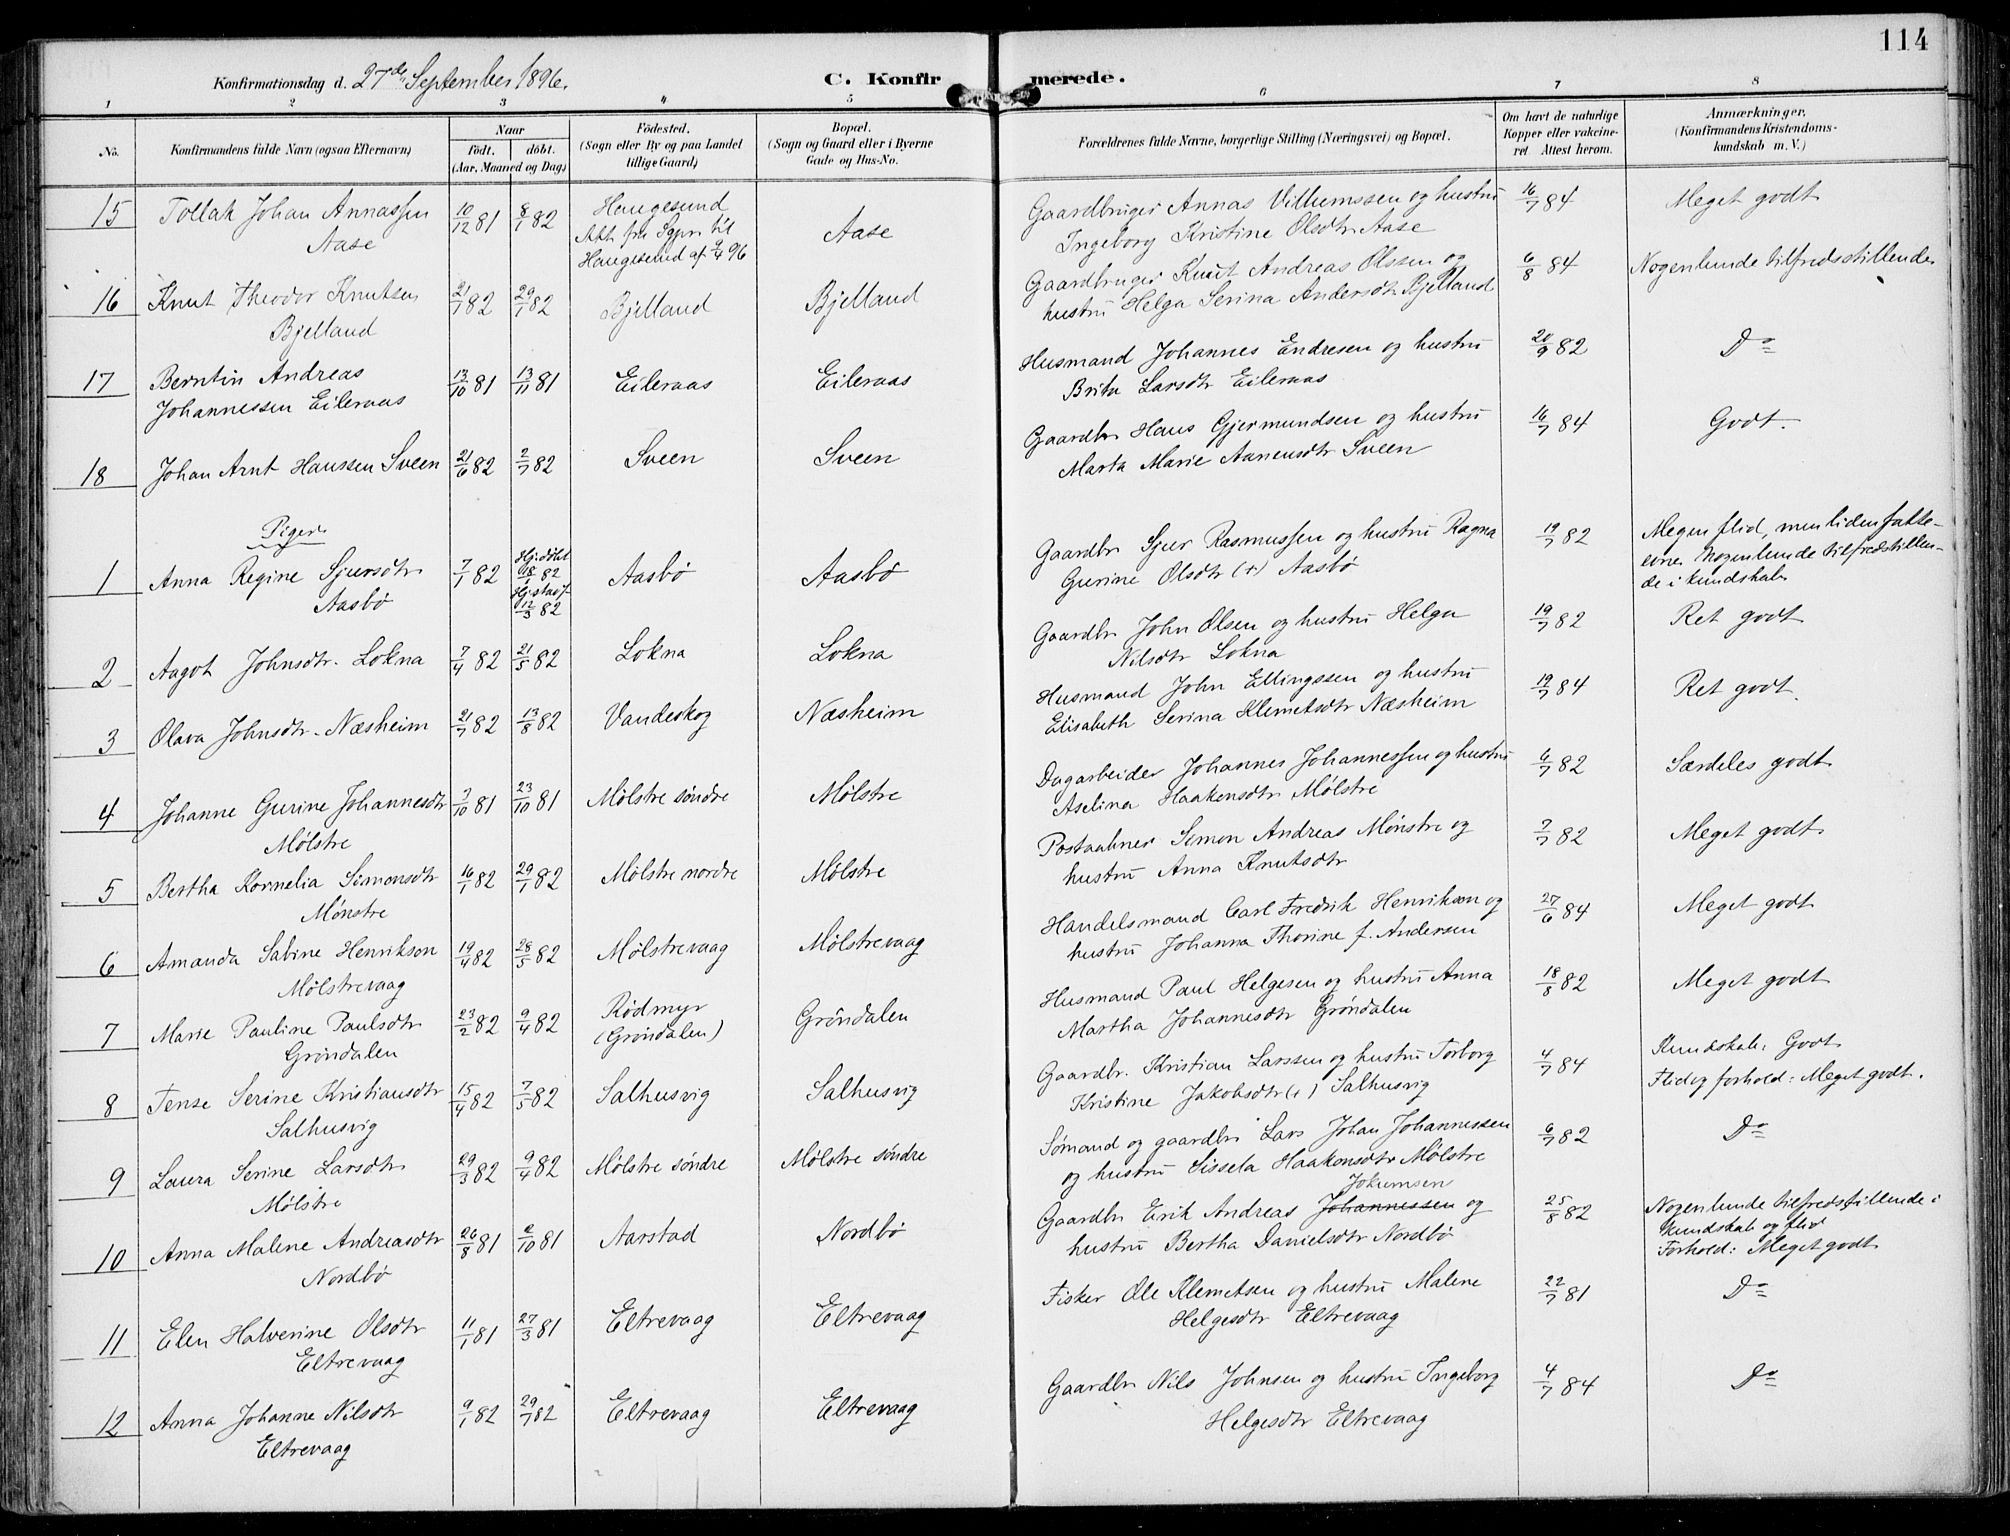 114
Konfirmationsdag d. 27de September 1896.
C. Konfirmerede.
1 2 3 4 5 6 7 8
No. Konfirmandens fulde Navn (ogsaa Efternavn)
Naar
Födt. döbt.
(Aar, Maaned og Dag)
Födested.
(Sogn eller By og paa Landet
tillige Gaard)
Bopæl.
(Sogn og Gaard eller i Byerne
Gade og Hus-No.
Forældrenes fulde Navne, borgerlige Stilling (Næringsvei) og Bopæl.
Om havt de naturlige
Kopper eller vakcine-
ret Attest herom.
Anmærkninger.
(Konfirmandens Kristendoms-
kundskab m. V.)
15 Tollak Johan Annassen
Aase
10/12 81 8/1 82
Haugesund
Att. fra Sgpr. til
Haugesund af 9/4 96
Aase
Gaardbruger Annas Vilhemssen og hustru
Ingeborg Kristine Olsdtr Aase
16/7 84 Meget godt
16 Knut Theodor Knutsen
Bjelland
21/1 82 29/1 82 Bjelland Bjelland
Gaardbruger Knut Andreas Olssen og
hustru Helga Serina Andersdtr Bjelland
6/8 84 Nogenlunde tilfredsstillende
17 Berntin Andreas
Johannessen Eileraas
13/10 81 13/11 81 Eileraas Eileraas
Husmand Johannes Endresen og hustru
Brita Larsdtr Eileraas
20/9 82 Do
18 Johan Arnt Hanssen Sveen 21/6 82 2/7 82 Sveen Sveen
Gaardbr Hans Gjermundsen og hustru
Marta Marie Aanensdtr Sveen
16/7 84 Godt.
Piger
1 Anna Regine Sjursdtr
Aasbö
7/1 82
Hj. döbt
18/1 82
12/3 82
Aasbö Aasbö
Gaardbr Sjur Rasmussen og hustru Ragna
Gurine Olsdtr (+) Aasbö
19/7 82
Megen flid, men liden fatte-
evne. Nogenlunde tilfredstillen-
de i kundskab
2 Aagot Johnsdtr. Lokna 7/4 82 21/5 82 Lokna Lokna
Gaardbr John Olsen og hustru Helga
Nilsdtr Lokna
19/7 82 Ret godt
3 Olava Johnsdtr. Næsheim 21/7 82 13/8 82 Vandeskog Næsheim
Husmand John Ellingssen og hustru
Elisabeth Serina Klemetsdtr Næsheim
19/7 84 Ret godt.
4 Johanne Gurine Johannesdtr
Mölstre
7/10 81 23/10 81 Mölstre söndre Mölstre
Dagarbeider Johannes Johannessen og hustru
Aselina Haakensdtr Mölstre
6/7 82 Særdeles godt
5 Bertha Kornelia Simonsdtr
Mönstre
16/1 82 29/1 82 Mölstre nordre Mölstre
Postaabner Simon Andreas Mönstre og
hustru Anna Knutsdtr
7/7 82 Meget godt
6 Amanda Sabine Henrikson
Mölstrevaag
19/4 82 28/5 82 Mölstrevaag Mölstrevaag
Handelsmand Carl Fredrik Henrikson og
hustru Johanna Thorine f. Andersen
27/6 84 Meget godt
7 Marie Pauline Paulsdtr
Gröndalen
23/2 82 9/4 82
Rödmyr
(Gröndalen)
Gröndalen
Husmand Paul Helgesen og hustru Anna
Martha Johannesdtr Gröndalen
18/8 82 Meget godt
8 Tense Serine Kristiansdtr
Salhusvig
15/4 82 7/5 82 Salhusvig Salhusvig
Gaardbr. Kristian Larssen og hustru Torborg
Kristine Jakobsdtr (+) Salhusvig
4/7 84
Kundskab: Godt
Flid og forhold: Meget godt.
9 Laura Serine Larsdtr
Mölstre
29/3 82 9/4 82 Mölstre söndre Mölstre söndre
Sömand og gaardbr Lars Johan Johannessen
og hustru Sissela Haakonsdtr Mölstre
6/7 82 Do
10 Anna Malene Andreasdtr
Nordbö
26/8 81 2/10 81 Aarstad Nordbö
Jokumsen
Gaardbr Erik Andreas Johannessen og
hustru Bertha Danielsdtr Nordbö
25/8 82
Nogenlunde tilfredsstillende i
kundskab og flid
Forhold: Meget godt
11 Elen Halverine Olsdtr
Eltrevaag
11/1 81 27/3 81 Eltrevaag Eltrevaag
Fisker Ole Klemetsen og hustru Malene
Helgesdtr Eltrevaag
22/7 81 Do
12 Anna Johanne Nilsdtr
Eltrevaag
9/1 82 29/1 82 Eltrevaag Eltrevaag
Gaardbr Nils Johnsen og hustru Ingeborg
Helgesdtr Eltrevaag
4/7 84 Do